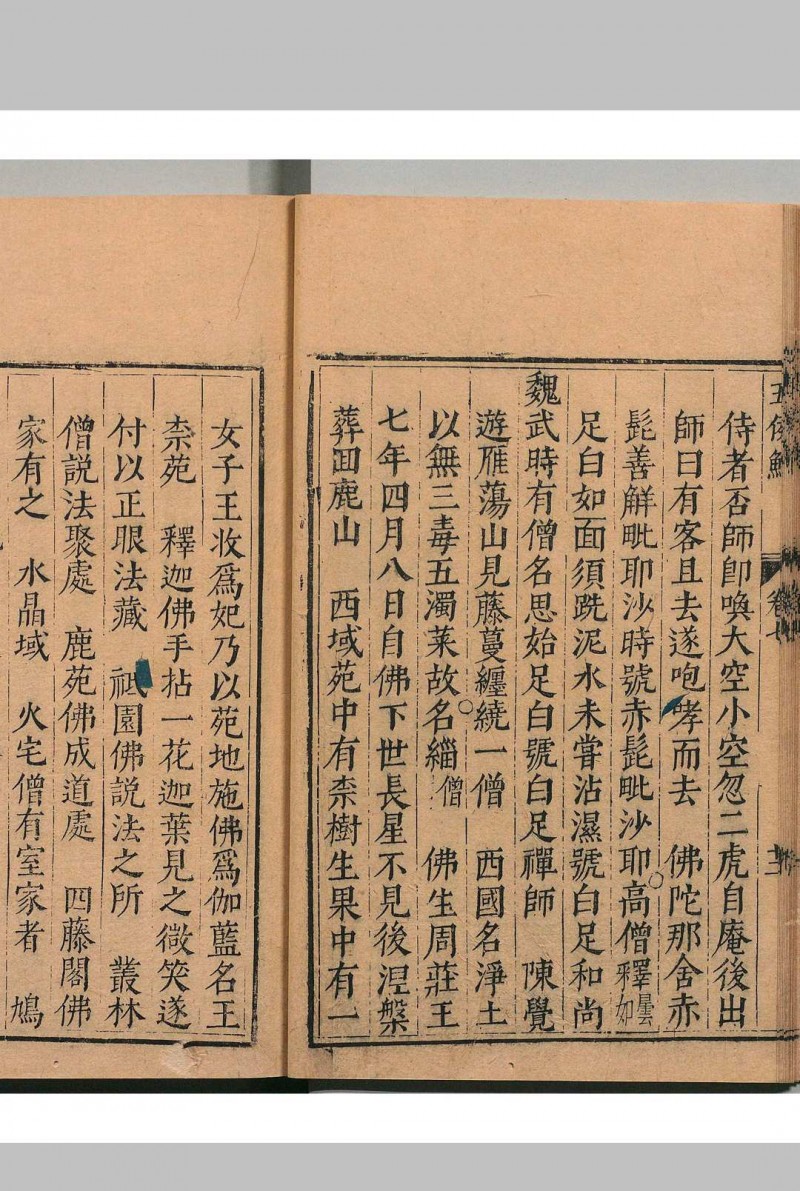 五侯鯖
卷七
十二
侍者否師卽喚大空小空忽二虎自庵後出
師曰有客且去遂咆哮而去　佛陀那舍赤
髭善解毗耶沙時號赤髭毗沙耶○高僧釋曇如
足白如面須跣泥水未嘗沾濕號白足和尚
魏武時有僧名思始足白號白足禪師　陳覺
遊雁蕩山見藤蔓纏繞一僧　西國名淨土
以無三毒五濁萊故名○緇僧　佛生周莊王
七年四月八日自佛下世長星不見後涅槃
葬囬鹿山　西域苑中有柰樹生果中有一
女子王收爲妃乃以苑地施佛爲伽藍名王
柰苑　釋迦佛手拈一花迦葉見之微笑遂
付以正眼法藏　祇園佛說法之所　叢林
僧說法聚處　鹿苑佛成道處　四藤閣佛
家有之　水晶域　火宅僧有室家者　鳩